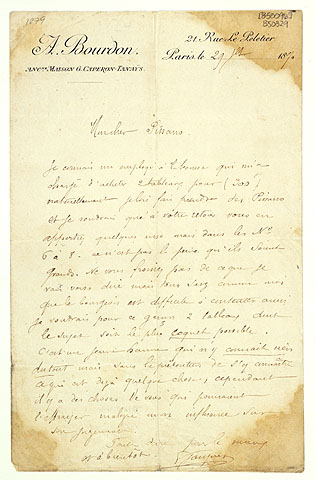 1279
A. Bourdon.
ANCne MAISON G. CAPERON-TANAYS.
21 Rue Le Peletier
Paris le 29 187
Mon cher Pissaro
Je connais un employé à la bourse qui m'a
chargé d'acheter 2 tableaux pour (300f
naturellement je lui fais prendre des Pissaro
et je voudrais que à votre retour vous en
apportiez quelques uns mais dans les Nos
6 à 8. ce n'est pas le peine qu'ils soient
Grands. Ne vous froissez pas de ce que je
vais vous dire mais vous savez comme moi
que le bourgeois est difficile à contenter aussi
je voudrais pour ce garçon 2 tableaux dont
le sujet soit le plus coquet possible.
C'est un jeune homme qui n'y connait rien
du tout mais sans la prétention de s'y connaître
ce qui est déjà quelque chose, cependant
il y a des choses de vous que pourraient
l'effrayer malgré mon influence sur
son jugement
Tout à vous
et à bientôt